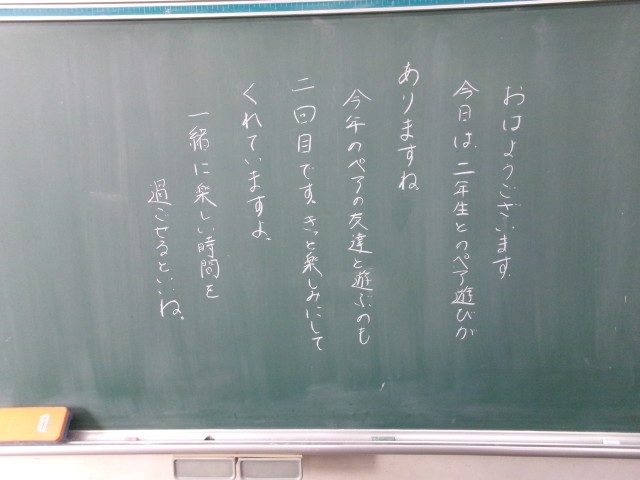 おはようございます。
今日は、二年生とのペア遊びが
ありますね。
今年のペアの友達と遊ぶのも
二回目です。きっと楽しみにして
くれていますよ。
一緒に楽しい時間を
過ごせるといいね。